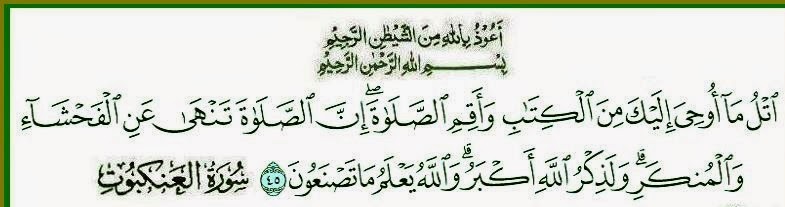 أَعُوْذُ بِاللهِ مِنَ الشَّيْطٰنِ الرَّجِيْمِ
بِسْمِ اللهِ الرَّحْمٰنِ الرَّحِيْمِ
ٱتْلُ مَآ أُوحِىَ إِلَيْكَ مِنَ ٱلْكِتَٰبِ وَأَقِمِ ٱلصَّلَوٰةَ ۖ إِنَّ ٱلصَّلَوٰةَ تَنْهَىٰ عَنِ ٱلْفَحْشَآءِ
وَٱلْمُنكَرِ ۗ وَلَذِكْرُ ٱللَّهِ أَكْبَرُ ۗ وَٱللَّهُ يَعْلَمُ مَا تَصْنَعُونَ ٤٥ سُورَةُ العَنكَبُوتِ